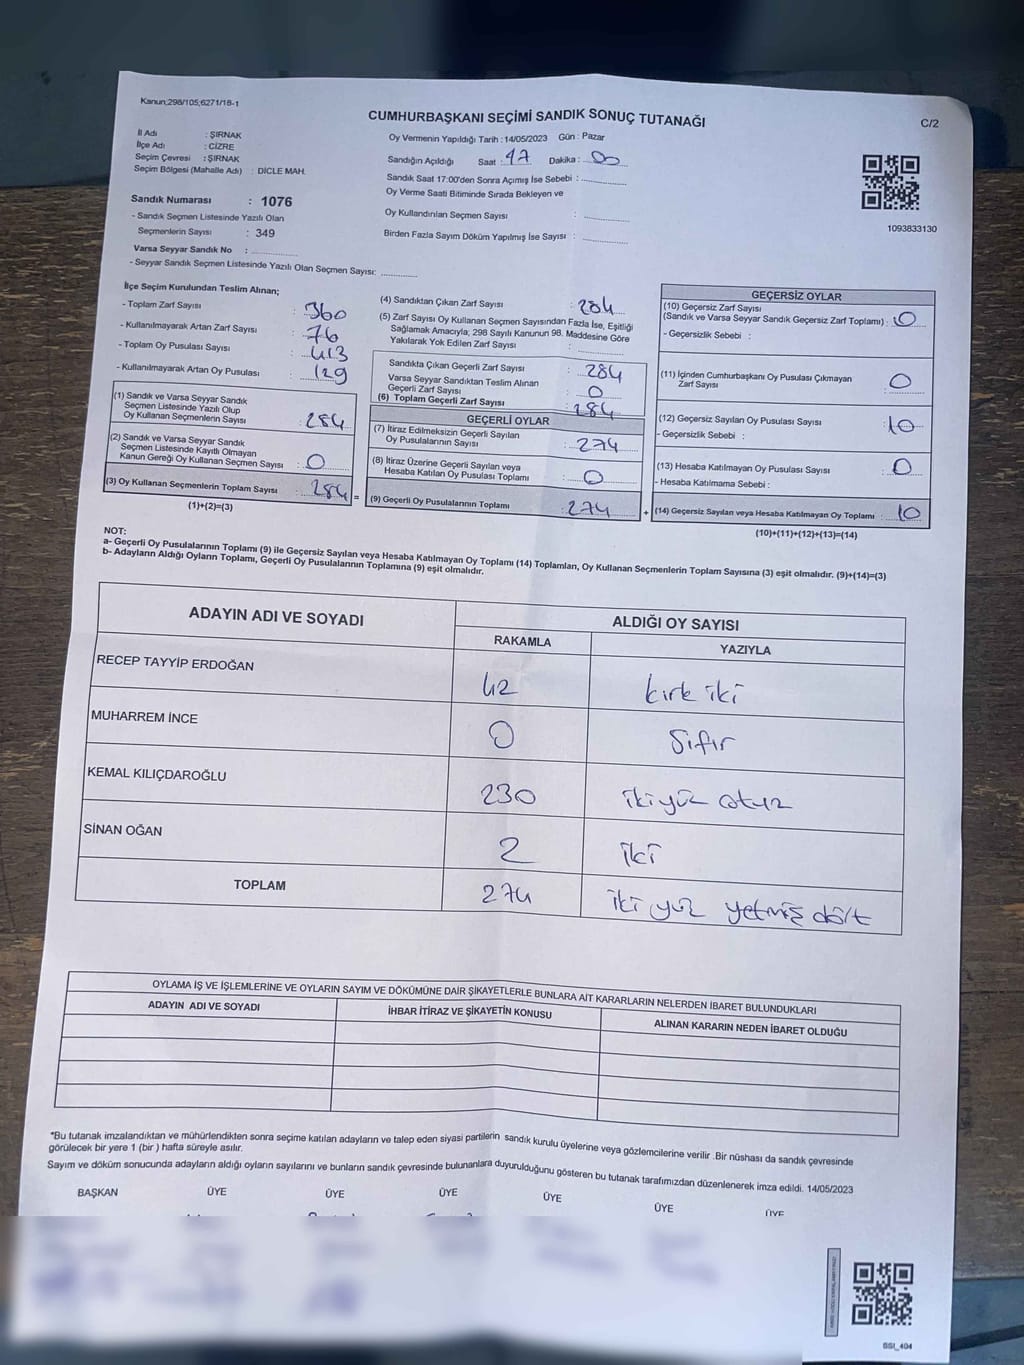 Kanun;298/105;6271/18-1
CUMHURBAŞKANI SEÇİMİ SANDIK SONUÇ TUTANAĞI
C/2
İl Adı : ŞIRNAK
İlçe Adı : CİZRE
Seçim Çevresi : ŞIRNAK
Seçim Bölgesi (Mahalle Adı) : DİCLE MAH.
Oy Vermenin Yapıldığı Tarih : 14/05/2023 Gün : Pazar
Sandığın Açıldığı Saat : 17 Dakika : 00
Sandık Saat 17:00'den Sonra Açımış İse Sebebi :
Oy Verme Saati Bitiminde Sırada Bekleyen ve
Oy Kullandırılan Seçmen Sayısı :
Birden Fazla Sayım Döküm Yapılmış İse Sayısı :
1093833130
Sandık Numarası : 1076
- Sandık Seçmen Listesinde Yazılı Olan
Seçmenlerin Sayısı : 349
Varsa Seyyar Sandık No :
- Seyyar Sandık Seçmen Listesinde Yazılı Olan Seçmen Sayısı:
İlçe Seçim Kurulundan Teslim Alınan;
- Toplam Zarf Sayısı : 360
- Kullanılmayarak Artan Zarf Sayısı : 76
- Toplam Oy Pusulası Sayısı : 413
- Kullanılmayarak Artan Oy Pusulası : 129
(1) Sandık ve Varsa Seyyar Sandık
Seçmen Listesinde Yazılı Olup
Oy Kullanan Seçmenlerin Sayısı : 284
(2) Sandık ve Varsa Seyyar Sandık
Seçmen Listesinde Kayıtlı Olmayan
Kanun Gereği Oy Kullanan Seçmen Sayısı : 0
(3) Oy Kullanan Seçmenlerin Toplam Sayısı : 284 =
(1)+(2)=(3)
(4) Sandıktan Çıkan Zarf Sayısı : 284
(5) Zarf Sayısı Oy Kullanan Seçmen Sayısından Fazla İse, Eşitliği
Sağlamak Amacıyla; 298 Sayılı Kanunun 98. Maddesine Göre
Yakılarak Yok Edilen Zarf Sayısı :
Sandıkta Çıkan Geçerli Zarf Sayısı : 284
Varsa Seyyar Sandıktan Teslim Alınan
Geçerli Zarf Sayısı : 0
(6) Toplam Geçerli Zarf Sayısı : 284
GEÇERLİ OYLAR
(7) İtiraz Edilmeksizin Geçerli Sayılan
Oy Pusulalarının Sayısı : 274
(8) İtiraz Üzerine Geçerli Sayılan veya
Hesaba Katılan Oy Pusulası Toplamı : 0
(9) Geçerli Oy Pusulalarının Toplamı : 274 +
GEÇERSİZ OYLAR
(10) Geçersiz Zarf Sayısı
(Sandık ve Varsa Seyyar Sandık Geçersiz Zarf Toplamı) : 0
- Geçersizlik Sebebi :
(11) İçinden Cumhurbaşkanı Oy Pusulası Çıkmayan
Zarf Sayısı : 0
(12) Geçersiz Sayılan Oy Pusulası Sayısı : 10
- Geçersizlik Sebebi :
(13) Hesaba Katılmayan Oy Pusulası Sayısı : 0
- Hesaba Katılmama Sebebi :
(14) Geçersiz Sayılan veya Hesaba Katılmayan Oy Toplamı : 10
(10)+(11)+(12)+(13)=(14)
NOT:
a- Geçerli Oy Pusulalarının Toplamı (9) ile Geçersiz Sayılan veya Hesaba Katılmayan Oy Toplamı (14) Toplamları, Oy Kullanan Seçmenlerin Toplam Sayısına (3) eşit olmalıdır. (9)+(14)=(3)
b- Adayların Aldığı Oyların Toplamı, Geçerli Oy Pusulalarının Toplamına (9) eşit olmalıdır.
ADAYIN ADI VE SOYADI
ALDIĞI OY SAYISI
RAKAMLA YAZIYLA
RECEP TAYYİP ERDOĞAN 42 kırk iki
MUHARREM İNCE 0 Sıfır
KEMAL KILIÇDAROĞLU 230 ikiyüz otuz
SİNAN OĞAN 2 iki
TOPLAM 274 iki yüz yetmiş dört
OYLAMA İŞ VE İŞLEMLERİNE VE OYLARIN SAYIM VE DÖKÜMÜNE DAİR ŞİKAYETLERLE BUNLARA AİT KARARLARIN NELERDEN İBARET BULUNDUKLARI
ADAYIN ADI VE SOYADI İHBAR İTİRAZ VE ŞİKAYETİN KONUSU ALINAN KARARIN NEDEN İBARET OLDUĞU
*Bu tutanak imzalandıktan ve mühürlendikten sonra seçime katılan adayların ve talep eden siyasi partilerin sandık kurulu üyelerine veya gözlemcilerine verilir .Bir nüshası da sandık çevresinde
görülecek bir yere 1 (bir ) hafta süreyle asılır.
Sayım ve döküm sonucunda adayların aldığı oyların sayılarını ve bunların sandık çevresinde bulunanlara duyurulduğunu gösteren bu tutanak tarafımızdan düzenlenerek imza edildi. 14/05/2023
BAŞKAN ÜYE ÜYE ÜYE ÜYE ÜYE ÜYE
SSI_404